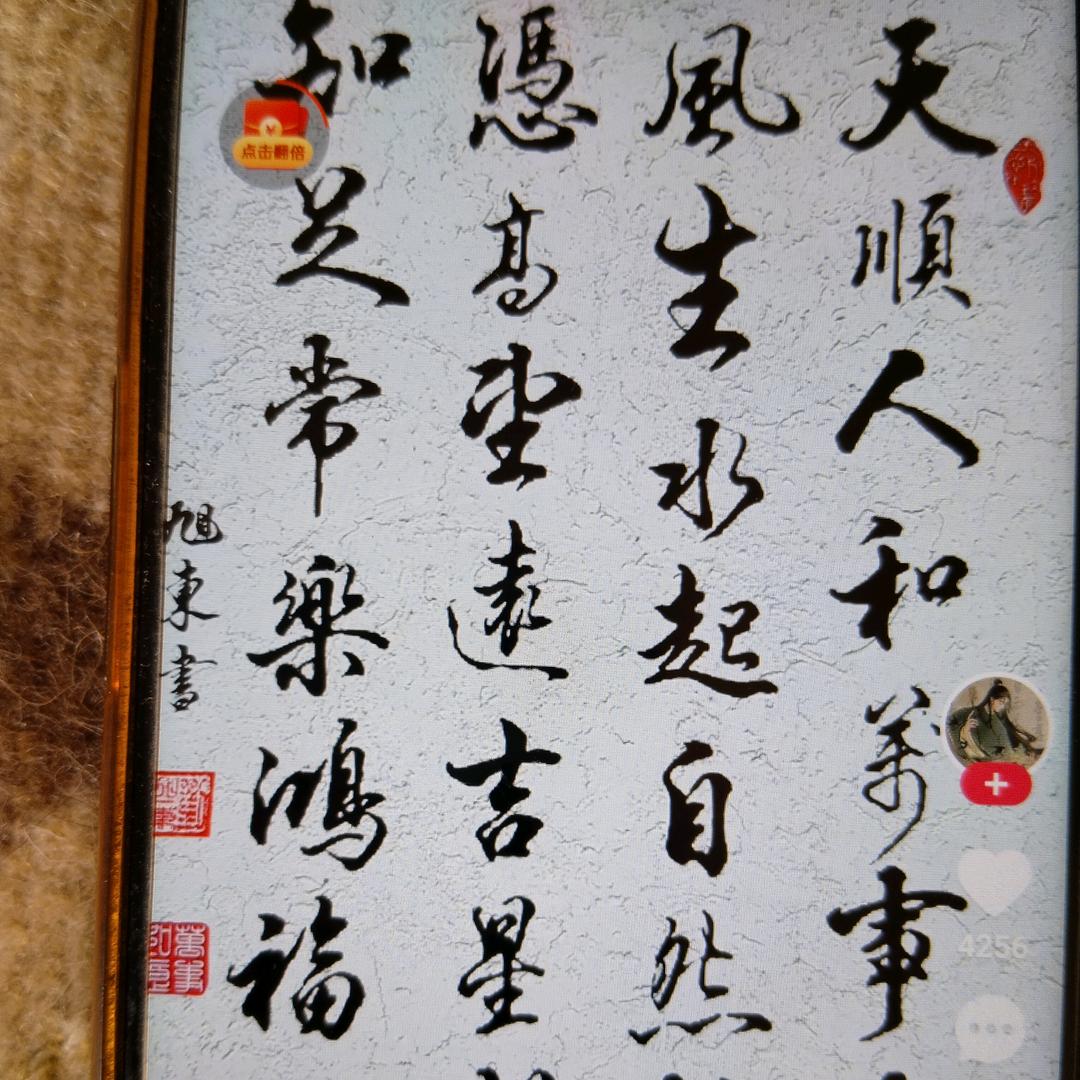 天順人和萬事
風生水起自然
憑高望遠吉星
知足常樂鴻福
旭東書
萬事
点击翻倍
4256